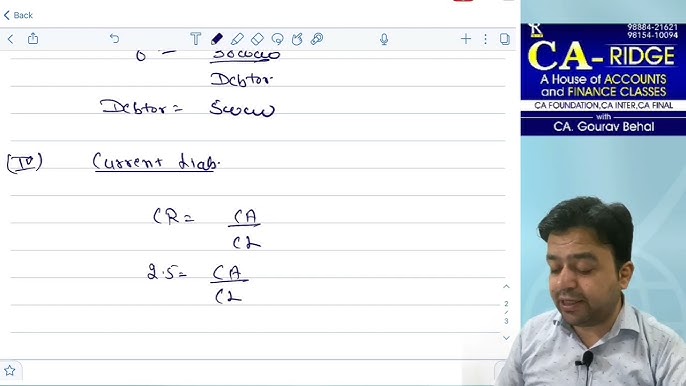 Back
98884-21621
98154-10094
CA- RIDGE
A House of ACCOUNTS
and FINANCE CLASSES
CA FOUNDATION,CA INTER,CA FINAL
with
CA. Gourav Behal
Debtor
Debtor =
(IV) Current Liab.
CR = CA
CL
2.5 = CA
CL
2
3